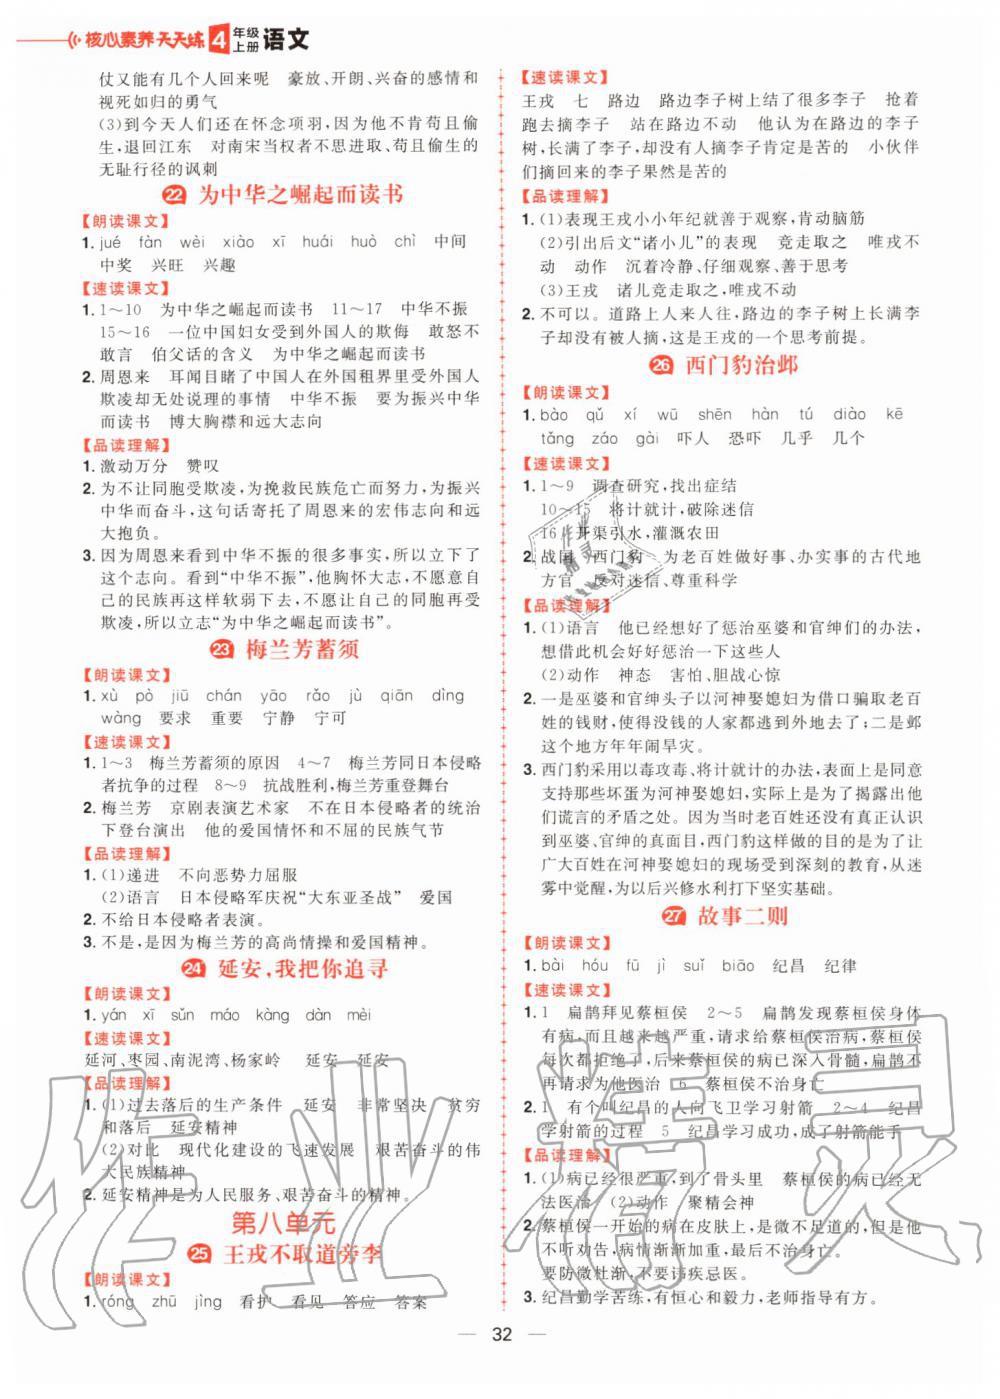 核心素养天天练 4年级上册 语文
仗又能有几个人回来呢　豪放、开朗、兴奋的感情和
视死如归的勇气
(3)到今天人们还在怀念项羽,因为他不肯苟且偷
生,退回江东　对南宋当权者不思进取、苟且偷生的
无耻行径的讽刺
22 为中华之崛起而读书
【朗读课文】
1. jué fàn wèi xiāo xī huái huò chì 中间
中奖　兴旺　兴趣
【速读课文】
1. 1～10　为中华之崛起而读书　11～17　中华不振
15～16　一位中国妇女受到外国人的欺侮　敢怒不
敢言　伯父话的含义　为中华之崛起而读书
2. 周恩来　耳闻目睹了中国人在外国租界里受外国人
欺凌却无处说理的事情　中华不振　要为振兴中华
而读书　博大胸襟和远大志向
【品读理解】
1. 激动万分　赞叹
2. 为不让同胞受欺凌,为挽救民族危亡而努力,为振兴
中华而奋斗,这句话寄托了周恩来的宏伟志向和远
大抱负。
3. 因为周恩来看到中华不振的很多事实,所以立下了
这个志向。看到“中华不振”,他胸怀大志,不愿意自
己的民族再这样软弱下去,不愿让自己的同胞再受
欺凌,所以立志“为中华之崛起而读书”。
23 梅兰芳蓄须
【朗读课文】
1. xù pò jiū chán yāo rǎo jù qiān dìng
wàng 要求　重要　宁静　宁可
【速读课文】
1. 1～3　梅兰芳蓄须的原因　4～7　梅兰芳同日本侵略
者抗争的过程　8～9　抗战胜利,梅兰芳重登舞台
2. 梅兰芳　京剧表演艺术家　不在日本侵略者的统治
下登台演出　他的爱国情怀和不屈的民族气节
【品读理解】
1. (1)递进　不向恶势力屈服
(2)语言　日本侵略军庆祝“大东亚圣战”　爱国
2. 不给日本侵略者表演。
3. 不是,是因为梅兰芳的高尚情操和爱国精神。
24 延安,我把你追寻
【朗读课文】
1. yán xī sǔn máo kàng dàn mèi
【速读课文】
延河、枣园、南泥湾、杨家岭　延安　延安
【品读理解】
1. (1)过去落后的生产条件　延安　非常坚决　贫穷
和落后　延安精神
(2)对比　现代化建设的飞速发展　艰苦奋斗的伟
大民族精神
2. 延安精神是为人民服务、艰苦奋斗的精神。
第八单元
25 王戎不取道旁李
【朗读课文】
1. róng zhū jìng 看护　看见　答应　答案
【速读课文】
王戎　七　路边　路边李子树上结了很多李子　抢着
跑去摘李子　站在路边不动　他认为在路边的李子
树,长了很多李子,却没有人摘李子是苦的　小伙伴
们摘回来的李子果然是苦的
【品读理解】
1. (1)表现王戎小小年纪就善于观察,肯动脑筋
(2)引出后文“诸小儿”的表现　竞走取之　唯戎不
动　动作　沉着冷静、仔细观察、善于思考
(3)王戎　诸儿竞走取之,唯戎不动
2. 不可以。道路上人来人往,路边的李子树上长满李
子却没有被人摘,这是王戎的一个思考前提。
26 西门豹治邺
【朗读课文】
1. bào qǔ xí wū shēn hàn tú diào kē
tǎng záo gài 吓人　恐吓　几乎　几个
【速读课文】
1. 1～9　调查研究,找出症结
10～15　将计就计,破除迷信
16　开渠引水,灌溉农田
2. 战国　西门豹　为老百姓做好事、办实事的古代地
方官　反对迷信、尊重科学
【品读理解】
1. (1)语言　他已经想好了惩治巫婆和官绅们的办法,
想借此机会好好惩治一下他们
(2)动作　神态　害怕、胆战心惊
2. 一是巫婆和官绅头子以河神娶媳妇为借口骗取老百
姓的钱财,使得没钱的人家都逃到外地去了;二是邺
这个地方年年闹旱灾。
3. 西门豹采用以毒攻毒、将计就计的办法,表面上是同意
支持那些坏蛋为河神娶媳妇,实际上是为了揭露出他
们谎言的矛盾之处。因为当时老百姓还没有真正认识
到巫婆、官绅的真面目,西门豹这样做的目的是为了让
广大百姓在河神娶媳妇的现场受到深刻的教育,从迷
雾中觉醒,为以后兴修水利打下坚实基础。
27 故事二则
【朗读课文】
1. bài hóu fū jì suǐ biāo 纪昌　纪律
【速读课文】
1. 1　扁鹊拜见蔡桓侯　2～5　扁鹊发现蔡桓侯身体
有病,而且越来越严重,请求给蔡桓侯治病,蔡桓侯
每次都拒绝了,后来蔡桓侯的病已深入骨髓,扁鹊不
再请求为他医治　6　蔡桓侯不治身亡
2. 1　有个叫纪昌的人向飞卫学习射箭　2～4　纪昌
学射箭的过程　5　纪昌学习成功,成了射箭能手
【品读理解】
1. (1)病已经很严重,到了骨头里　蔡桓侯的病已经无
法医治　(2)动作　聚精会神
2. 蔡桓侯一开始的病在皮肤上,是微不足道的,但由于他
不听劝告,病情渐渐加重,最后不治身亡。
要防微杜渐,不要讳疾忌医。
3. 纪昌勤学苦练,有恒心和毅力,老师指导有方。
32
作业精灵